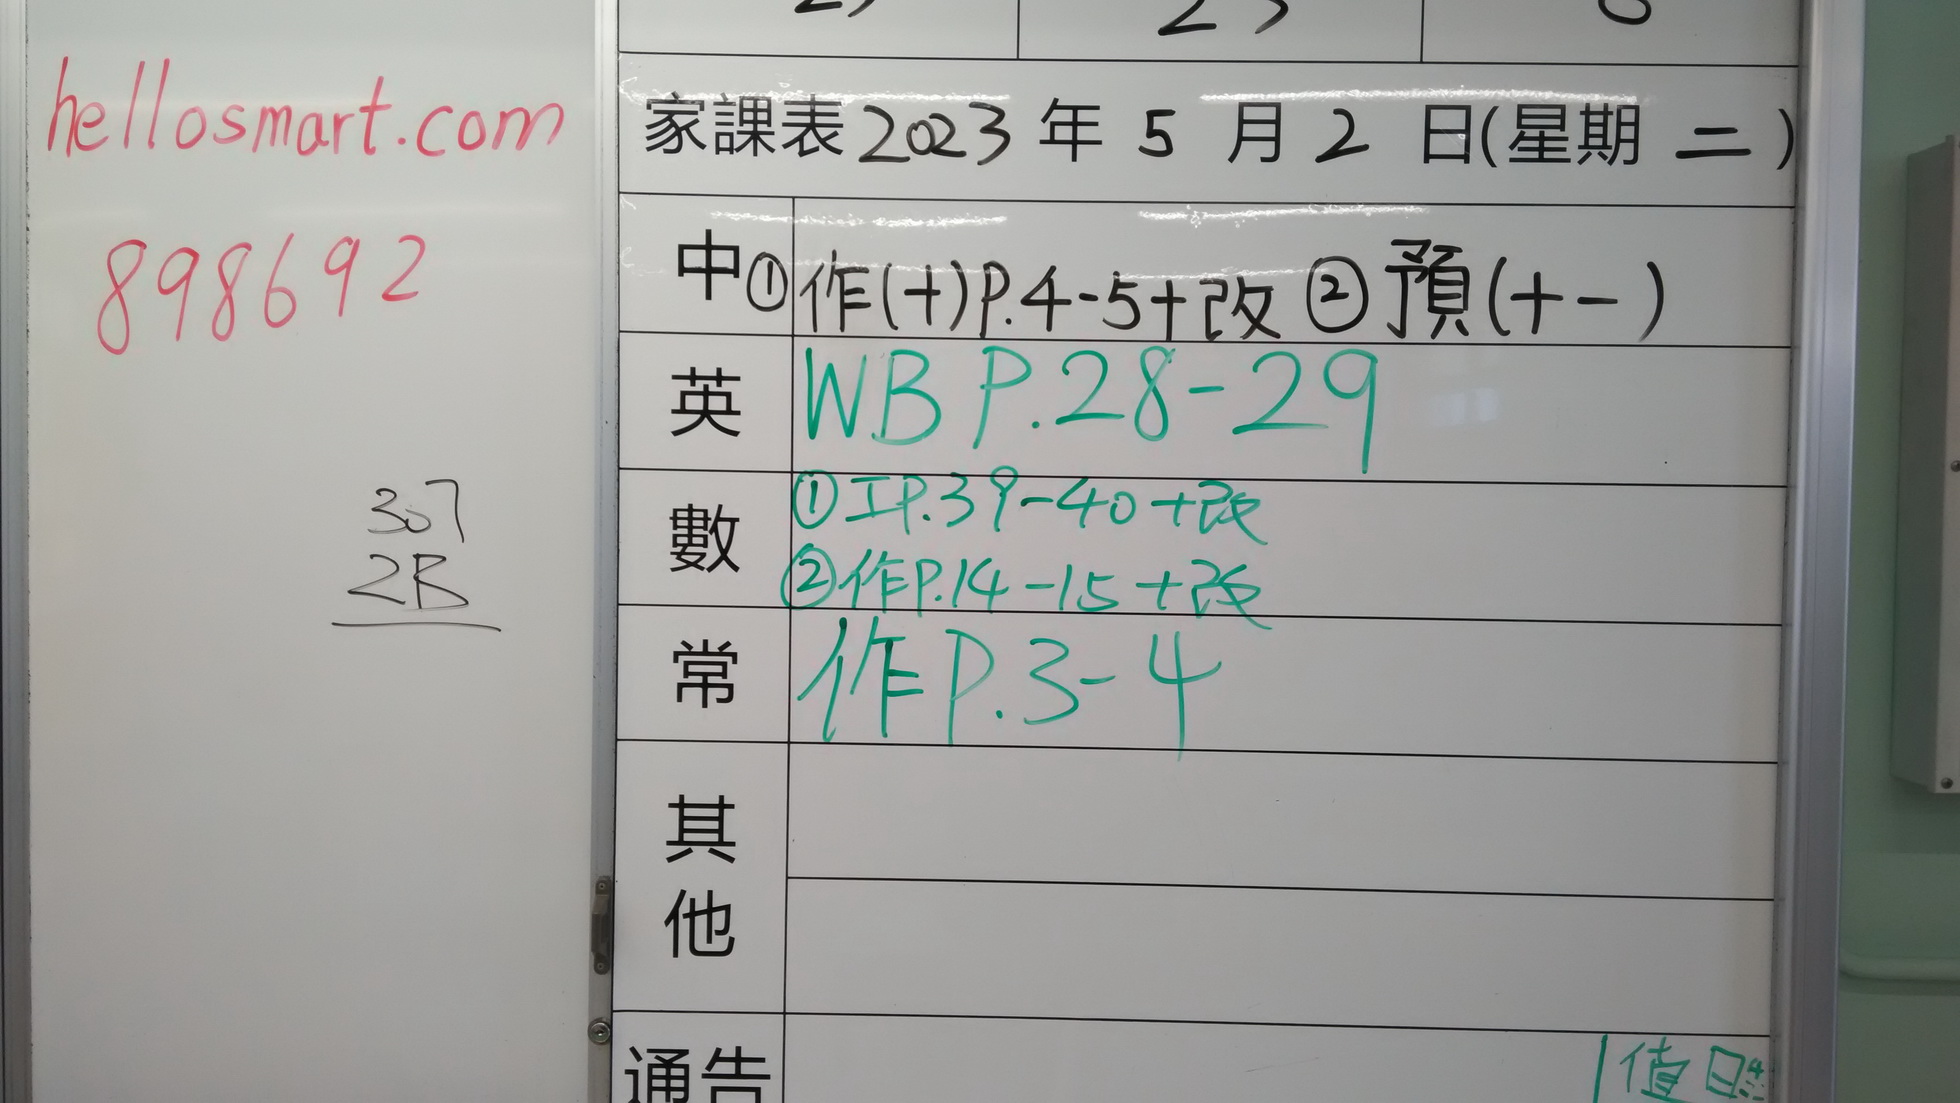 hellosmart.com
898692
307
2B
家課表2023年5月2日(星期二)
中①作(十)P.4-5+改②預(十一)
英 WB P.28-29
數 ①工P.39-40+改
②作P.14-15+改
常 作P.3-4
其他
通告
值日